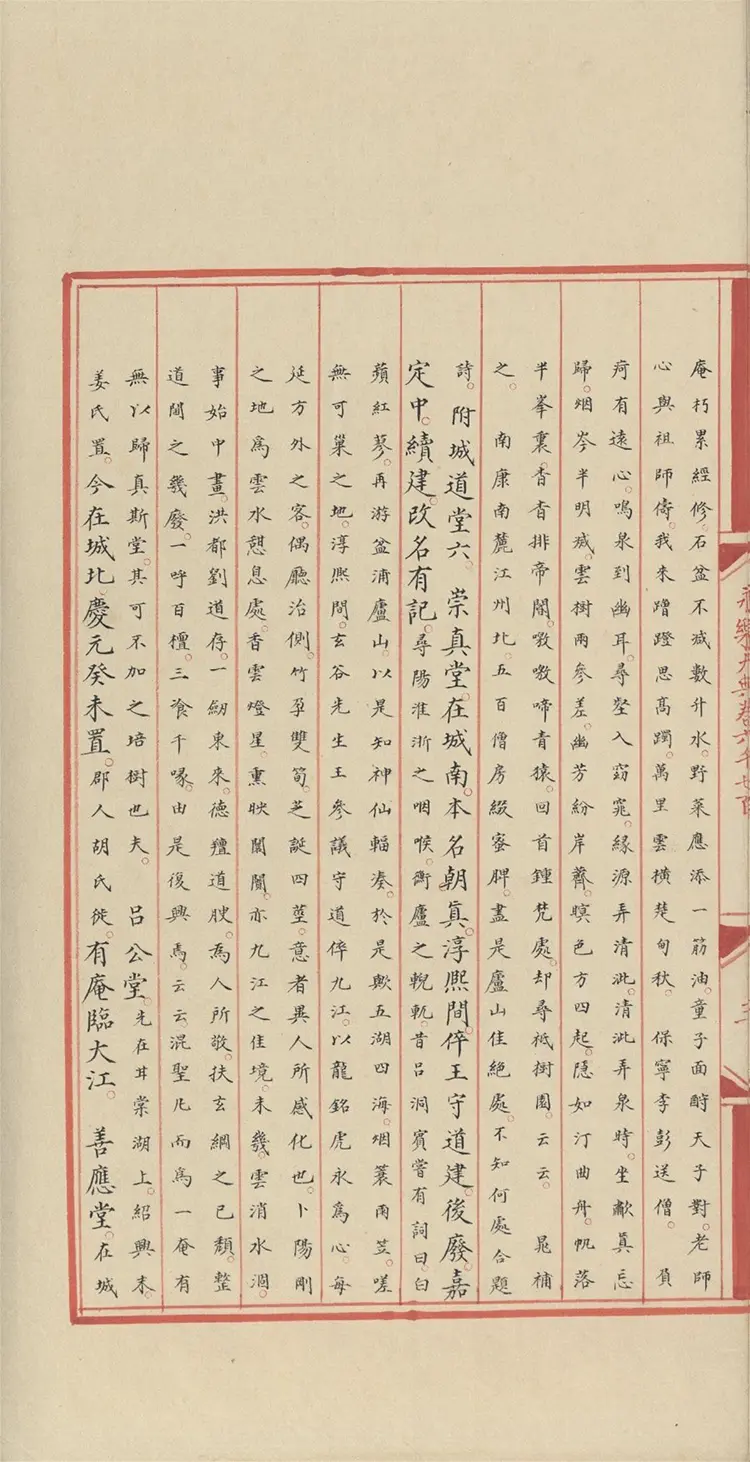 永樂大典卷六千七百
庵朽累經修。石盆不減數升水。野菜應添一筋油。童子面酧天子對。老師
心與祖師儔。我來蹭蹬思髙躅。萬里雲橫楚甸秋。 保寧李彭送僧。 負
疴有遠心。鳴泉到幽耳。尋壑入窈窕。緣源弄清泚。清泚弄泉時。坐㱃真忘
歸。烟岑半明滅。雲樹兩參差。幽芳紛岸薺。暝色方四起。隱如汀曲舟。帆落
半峯裏。杳杳排帝閽。嗷嗷啼青猿。回首鍾梵處。却尋袛樹園。云云。 晁補
之。 南康南麓江州北。五百僧房綴蜜脾。盡是廬山佳絕處。不知何處合題
詩。附城道堂六。 崇真堂。在城南。本名朝真。淳熙間。倅王守道建。後廢。嘉
定中。續建。改名有記。尋陽淮浙之咽喉。衡廬之輗軏。昔呂洞賔嘗有詞曰。白
蘋紅蓼。再游盆浦廬山。以是知神仙輻湊。於是歟五湖四海。烟蓑雨笠。嗟
無可巢之地。淳熙間。玄谷先生王參議守道倅九江。以龍鉛虎汞爲心。每
延方外之客。偶廳治側。竹孕雙筍。芝誕四莖。意者異人所感化也。卜陽剛
之地爲雲水憩息處。香雲燈星。熏映闤闠。亦九江之佳境。未幾。雲消水涸。
事始中畫。洪都劉道存。一劒東來。德羶道腴。爲人所敬。扶玄綱之已頹。整
道閒之幾廢。一呼百檀。三飡千喙。由是復興焉。云云。混聖凡而爲一奄有
無以歸真斯堂。其可不加之培樹也夫。 呂公堂。先在甘棠湖上。紹興末。
姜氏置。今在城北。慶元癸未置。郡人胡氏徙。有庵臨大江。 善應堂。在城